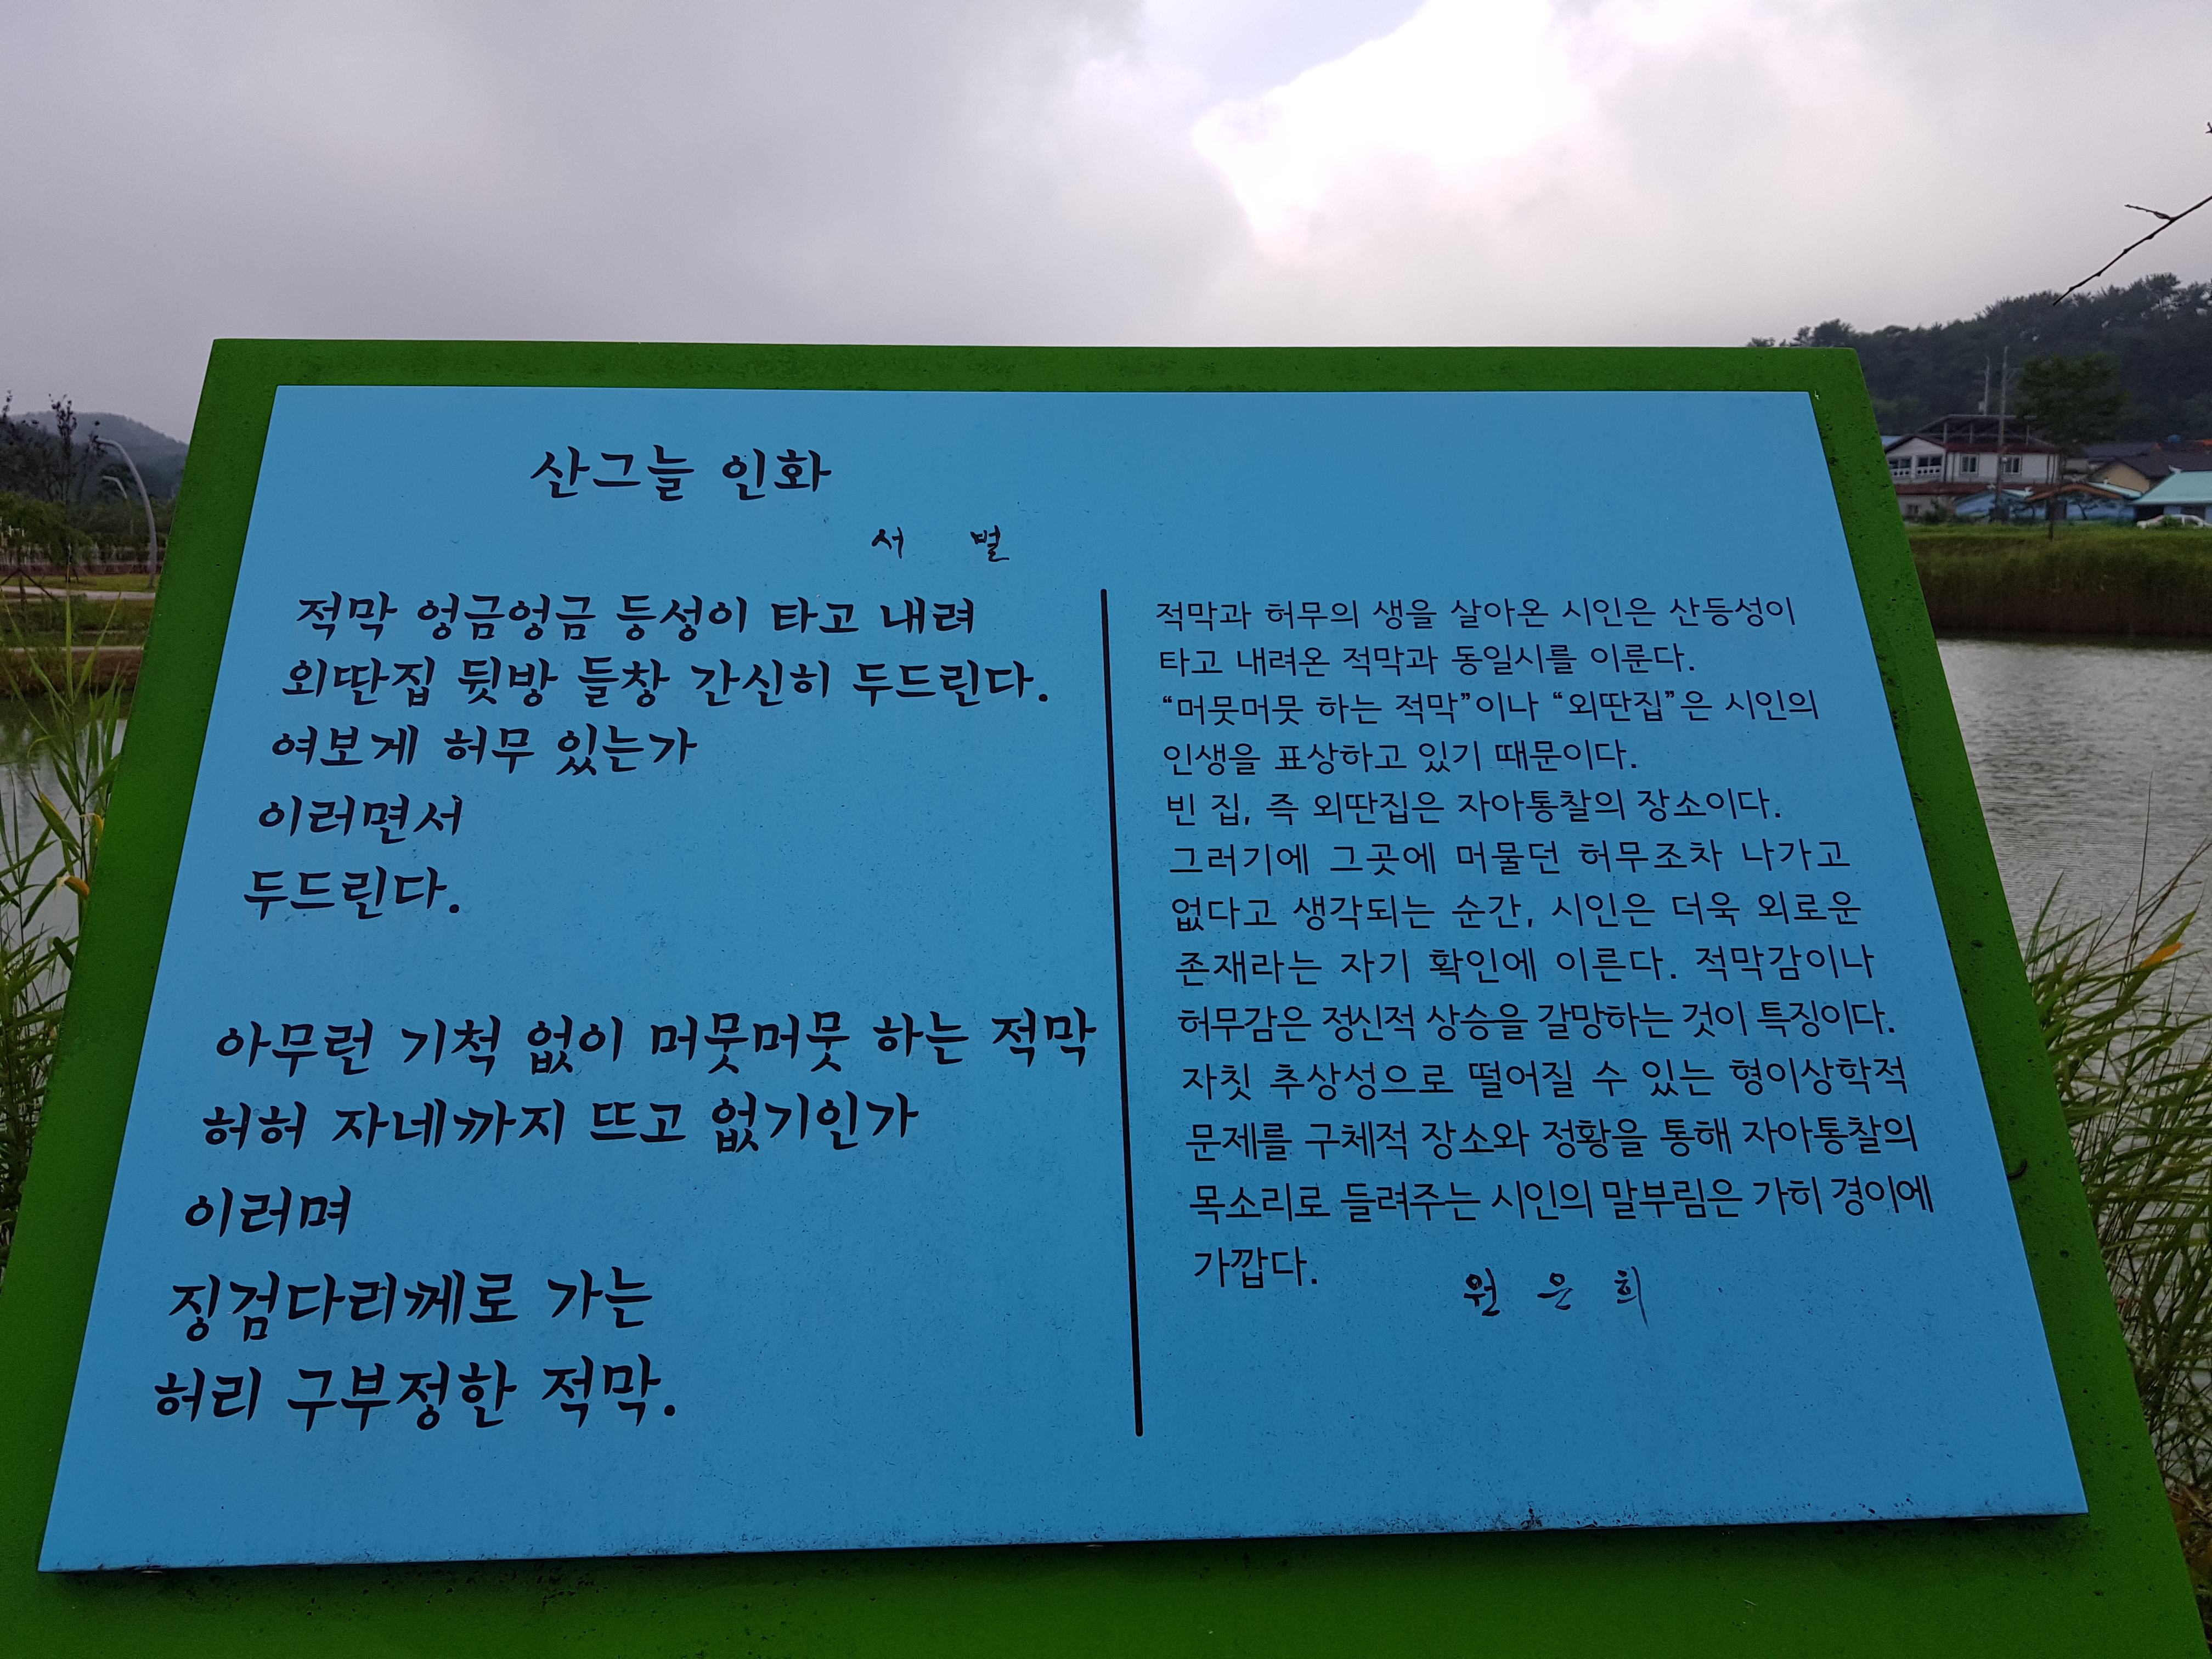 산그늘 인화
서 벌
적막 엉금엉금 등성이 타고 내려
외딴집 뒷방 들창 간신히 두드린다.
여보게 허무 있는가
이러면서
두드린다.
아무런 기척 없이 머뭇머뭇 하는 적막
허허 자네까지 뜨고 없기인가
이러며
징검다리께로 가는
허리 구부정한 적막.
적막과 허무의 생을 살아온 시인은 산등성이
타고 내려온 적막과 동일시를 이룬다.
“머뭇머뭇 하는 적막”이나 “외딴집”은 시인의
인생을 표상하고 있기 때문이다.
빈 집, 즉 외딴집은 자아통찰의 장소이다.
그러기에 그곳에 머물던 허무조차 나가고
없다고 생각되는 순간, 시인은 더욱 외로운
존재라는 자기 확인에 이른다. 적막감이나
허무감은 정신적 상승을 갈망하는 것이 특징이다.
자칫 추상성으로 떨어질 수 있는 형이상학적
문제를 구체적 장소와 정황을 통해 자아통찰의
목소리로 들려주는 시인의 말부림은 가히 경이에
가깝다.
원 은 희